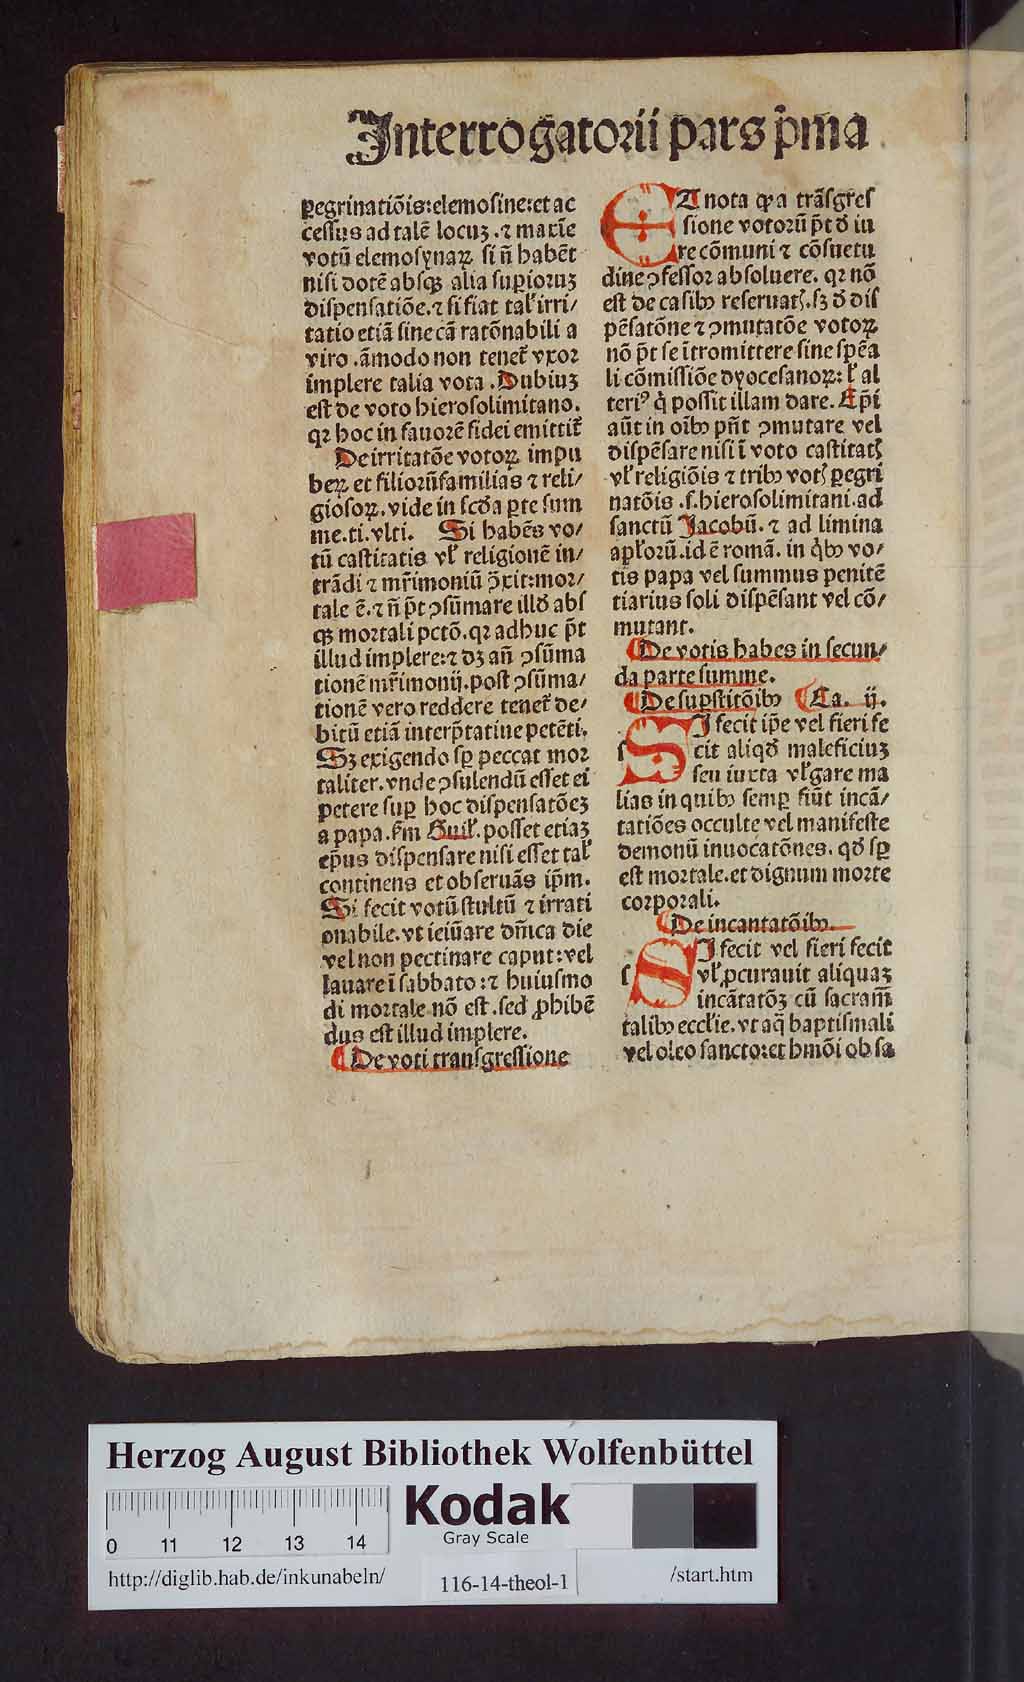 Interrogatorii pars p̄ma
ꝑegrinatiōis: elemosine: et ac
cessus ad talē locuꝫ. ⁊ maxīe
votū elemosynaꝝ si n̄ habēt
nisi dotē absqꝫ alia suꝑioruꝫ
dispensatiōe. ⁊ si fiat talꝭ irri/
tatio etiā sine cā ratōnabili a
viro. āmodo non tenet᷑ vxor
implere talia vota. Dubiuꝫ
est de voto hierosolimitano.
qꝛ hoc in fauorē fidei emittit᷑
De irritatōe votoꝝ impu
beꝝ et filiorū familias ⁊ reli/
giosoꝝ. vide in scđa ꝑte sum
me. ti. vlti. Si habēs vo/
tū castitatis vl̓ religionē in/
trādi ⁊ mr̄imoniū ꝯ̄xit: mor/
tale ē. ⁊ n̄ p̄t ꝯsūmare illđ abs
qꝫ mortali pctō. qꝛ adhuc p̄t
illud implere: ⁊ dꝫ añ ꝯsūma
tionē mr̄imonij. post ꝯsūma/
tionē vero reddere tenet᷑ de/
bitū etiā interp̄tatiue petēti.
Sꝫ exigendo sꝑ peccat mor
taliter. vnde ꝯsulendū esset ei
petere suꝑ hoc dispensatōeꝫ
a papa. fm̄ Guil̓. posset etiaꝫ
ep̄us dispensare nisi esset tal̓
continens et obseruās ip̄m.
Si fecit votū stultū ⁊ irrati
onabile. vt ieiūare dn̄ica die
vel non pectinare caput: vel
lauare ī sabbato: ⁊ huiusmo
di mortale nō est. sed ꝓhibē
dus est illud implere.
De voti transgressione
ET nota ꝙ a trāsgres
sione votorū p̄t đ iu
re cōmuni ⁊ cōsuetu
dine ꝯfessor absoluere. qꝛ nō
est de casibꝰ reseruatꝭ. sꝫ đ dis
pēsatōne ⁊ ꝯmutatōe votoꝝ
nō p̄t se ītromittere sine spēa
li cōmissiōe dyocesanoꝝ: l̓ al
teriꝰ q̇ possit illam dare. Ep̄i
aūt in oībꝰ pn̄t ꝯmutare vel
dispēsare nisi ī voto castitatꝭ
vl̓ religiōis ⁊ tribꝰ votꝭ ꝑegri
natōis .s. hierosolimitani. ad
sanctū Jacobū. ⁊ ad limina
apl̓orū. id ē romā. in q̇bꝰ vo/
tis papa vel summus penitē
tiarius soli dispēsant vel cō/
mutant.
De votis habes in secun/
da parte summe.
De suꝑstitōibꝰ Ca. ij.
SI fecit ip̄e vel fieri fe
cit aliqđ maleficiuꝫ
seu iuxta vl̓gare ma
lias in quibꝰ semꝑ fiūt incā/
tatiōes occulte vel manifeste
demonū inuocatōnes. qđ sꝑ
est mortale. et dignum morte
corporali.
De incantatōibꝰ.
SI fecit vel fieri fecit
vl̓ ꝓcurauit aliquaꝫ
incātatōꝫ cū sacram̄
talibꝰ eccl̓ie. vt aq̄ baptismali
vel oleo sancto: et hmōi ob sa
Herzog August Bibliothek Wolfenbüttel
Kodak
Gray Scale
0 11 12 13 14
http://diglib.hab.de/inkunabeln/
116-14-theol-1
/start.htm